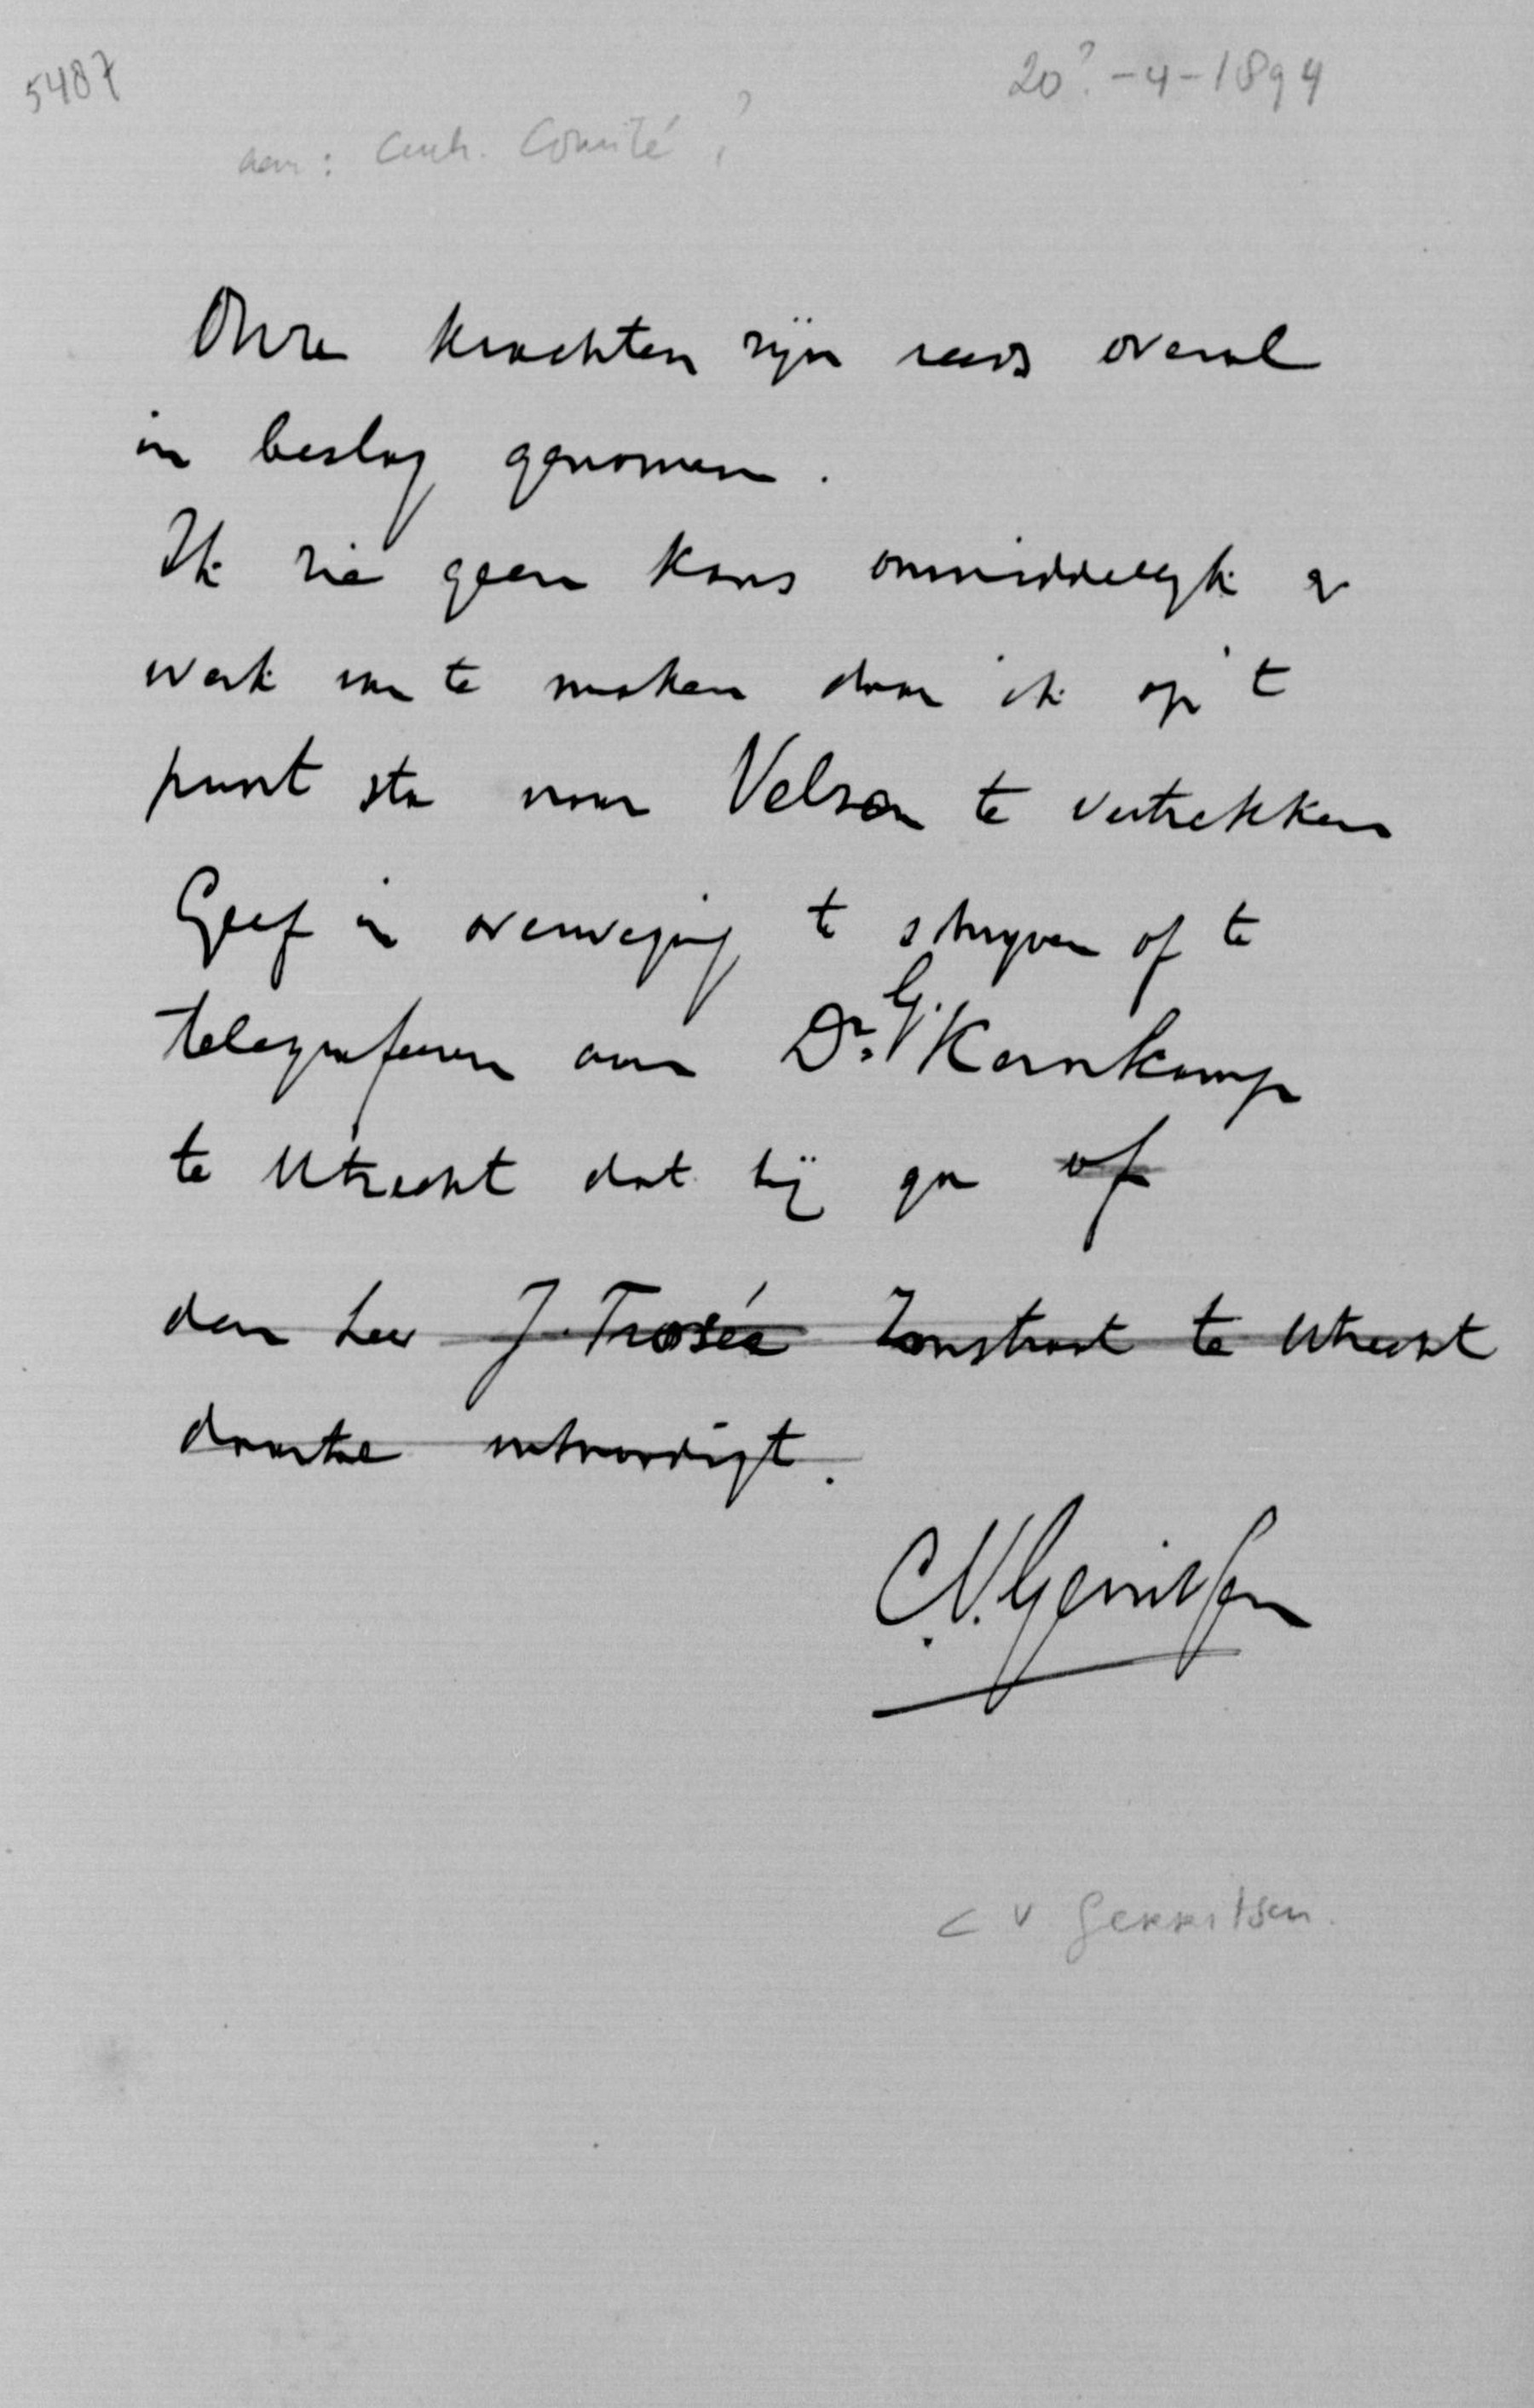 5487
20?-4-1894
aan: Centr. Comité?
Onze krachten zijn reeds overal
in beslag genomen.
Ik zie geen kans onmiddellijk er
werk van te maken daar ik op 't
punt sta naar Velsen te vertrekken
Geef in overweging te schrijven of te
telegrafeeren aan Dr. G. Kernkamp
te Utrecht dat hij ga of
den heer J. Trosée Zonstraat te Utrecht
daartoe uitnoodigt.
C.V. Gerritsen
C V Gerritsen.